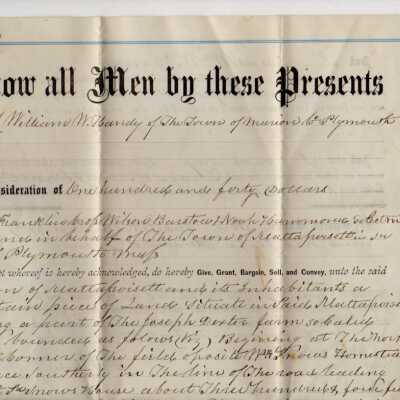 ow all Men by these Presents
William W. Handy of The Town of Marion Co Plymouth
sideration of One hundred and forty Dollars
Franklin Cross Wilson Barstow & Noah Hammond selectm
in behalf of The Town of Mattapoisett in sd
Plymouth Mass
t whereof is hereby acknowledged, do hereby Give, Grant, Bargain, Sell, and Convey, unto the said
n of Mattapoisett and its Inhabitants a
tain piece of Land Situate in Said Mattapoise
g a part of The Joseph Dexter farm so Called
bounded as folows (viz) Begining at The Nort
Corner of The field oposite Wm Snows Homestea
ce Southerly in The line of The road leading
Snows House about Three hundred & forty fe